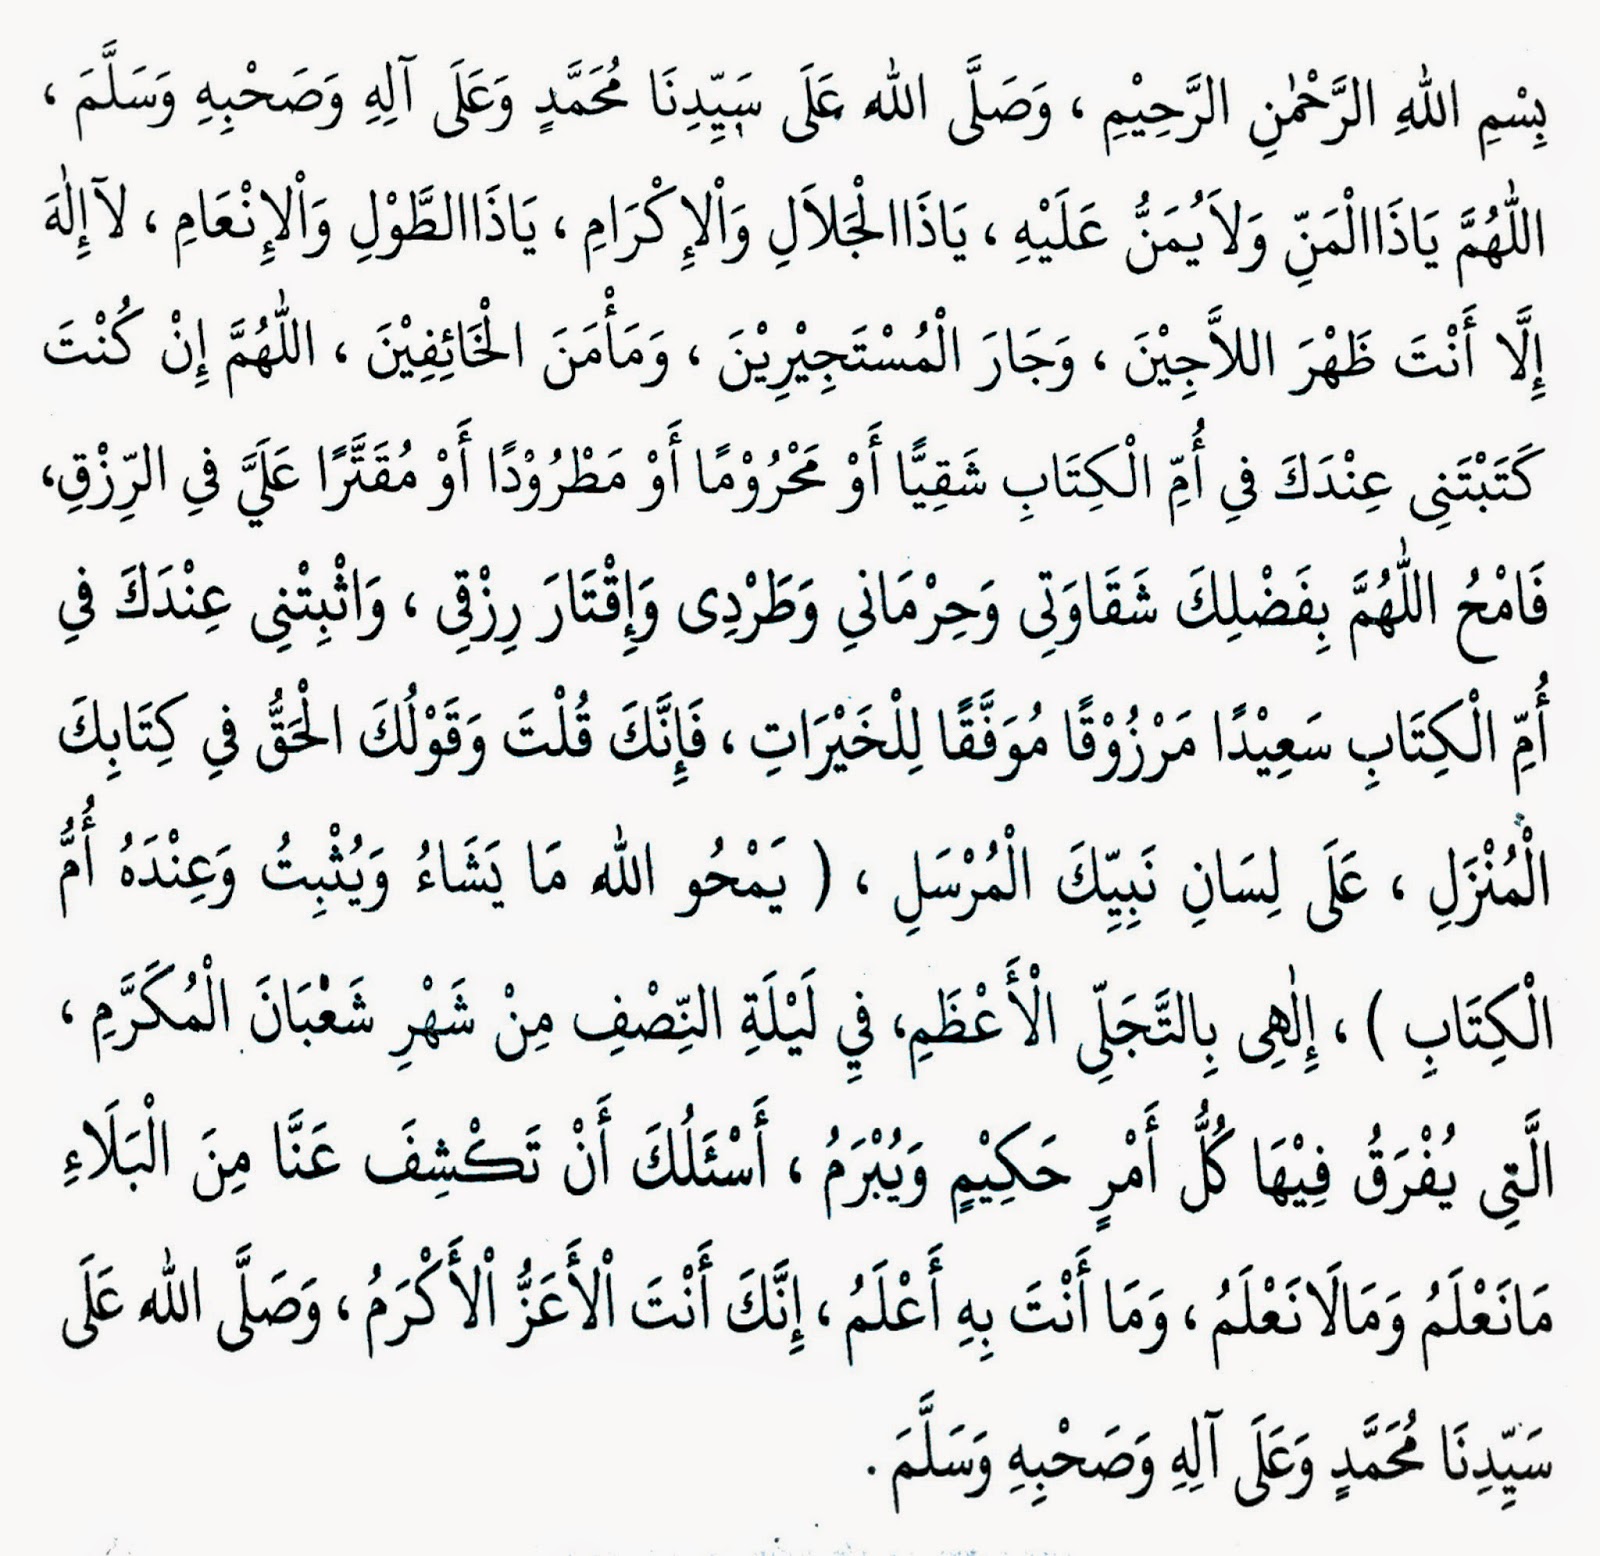 بِسْمِ اللهِ الرَّحْمٰنِ الرَّحِيْمِ ، وَصَلَّى الله عَلَى سَيِّدِنَا مُحَمَّدٍ وَعَلَى آلِهِ وَصَحْبِهِ وَسَلَّمَ ،
اللّٰهُمَّ يَاذَاالْمَنِّ وَلاَيُمَنُّ عَلَيْهِ ، يَاذَاالْجَلاَلِ وَاْلإِكْرَامِ ، يَاذَاالطَّوْلِ وَاْلإِنْعَامِ ، لآإِلٰهَ
إِلَّا أَنْتَ ظَهْرَ اللاَّجِيْنَ ، وَجَارَ الْمُسْتَجِيْرِيْنَ ، وَمَأْمَنَ الْخَائِفِيْنَ ، اللّٰهُمَّ إِنْ كُنْتَ
كَتَبْتَنِى عِنْدَكَ فِي أُمِّ الْكِتَابِ شَقِيًّا أَوْ مَحْرُوْمًا أَوْ مَطْرُوْدًا أَوْ مُقَتَّرًا عَلَيَّ فِي الرِّزْقِ،
فَامْحُ اللّٰهُمَّ بِفَضْلِكَ شَقَاوَتِى وَحِرْمَانِي وَطَرْدِى وَإِقْتَارَ رِزْقِى ، وَاثْبِتْنِى عِنْدَكَ فِي
أُمِّ الْكِتَابِ سَعِيْدًا مَرْزُوْقًا مُوَفَّقًا لِلْخَيْرَاتِ ، فَإِنَّكَ قُلْتَ وَقَوْلُكَ الْحَقُّ فِي كِتَابِكَ
الْمُنْزَلِ ، عَلَى لِسَانِ نَبِيِّكَ الْمُرْسَلِ ، ( يَمْحُو الله مَا يَشَاءُ وَيُثْبِتُ وَعِنْدَهُ أُمُّ
الْكِتَابِ ) ، إِلٰهِى بِالتَّجَلِّى الْأَعْظَمِ، فِي لَيْلَةِ النِّصْفِ مِنْ شَهْرِ شَعْبَانَ الْمُكَرَّمِ ،
الَّتِى يُفْرَقُ فِيْهَا كُلُّ أَمْرٍ حَكِيْمٍ وَيُبْرَمُ ، أَسْئَلُكَ أَنْ تَكْشِفَ عَنَّا مِنَ الْبَلَاءِ
مَانَعْلَمُ وَمَالَانَعْلَمُ ، وَمَا أَنْتَ بِهِ أَعْلَمُ ، إِنَّكَ أَنْتَ اْلأَعَزُّ اْلأَكْرَمُ ، وَصَلَّى الله عَلَى
سَيِّدِنَا مُحَمَّدٍ وَعَلَى آلِهِ وَصَحْبِهِ وَسَلَّمَ .